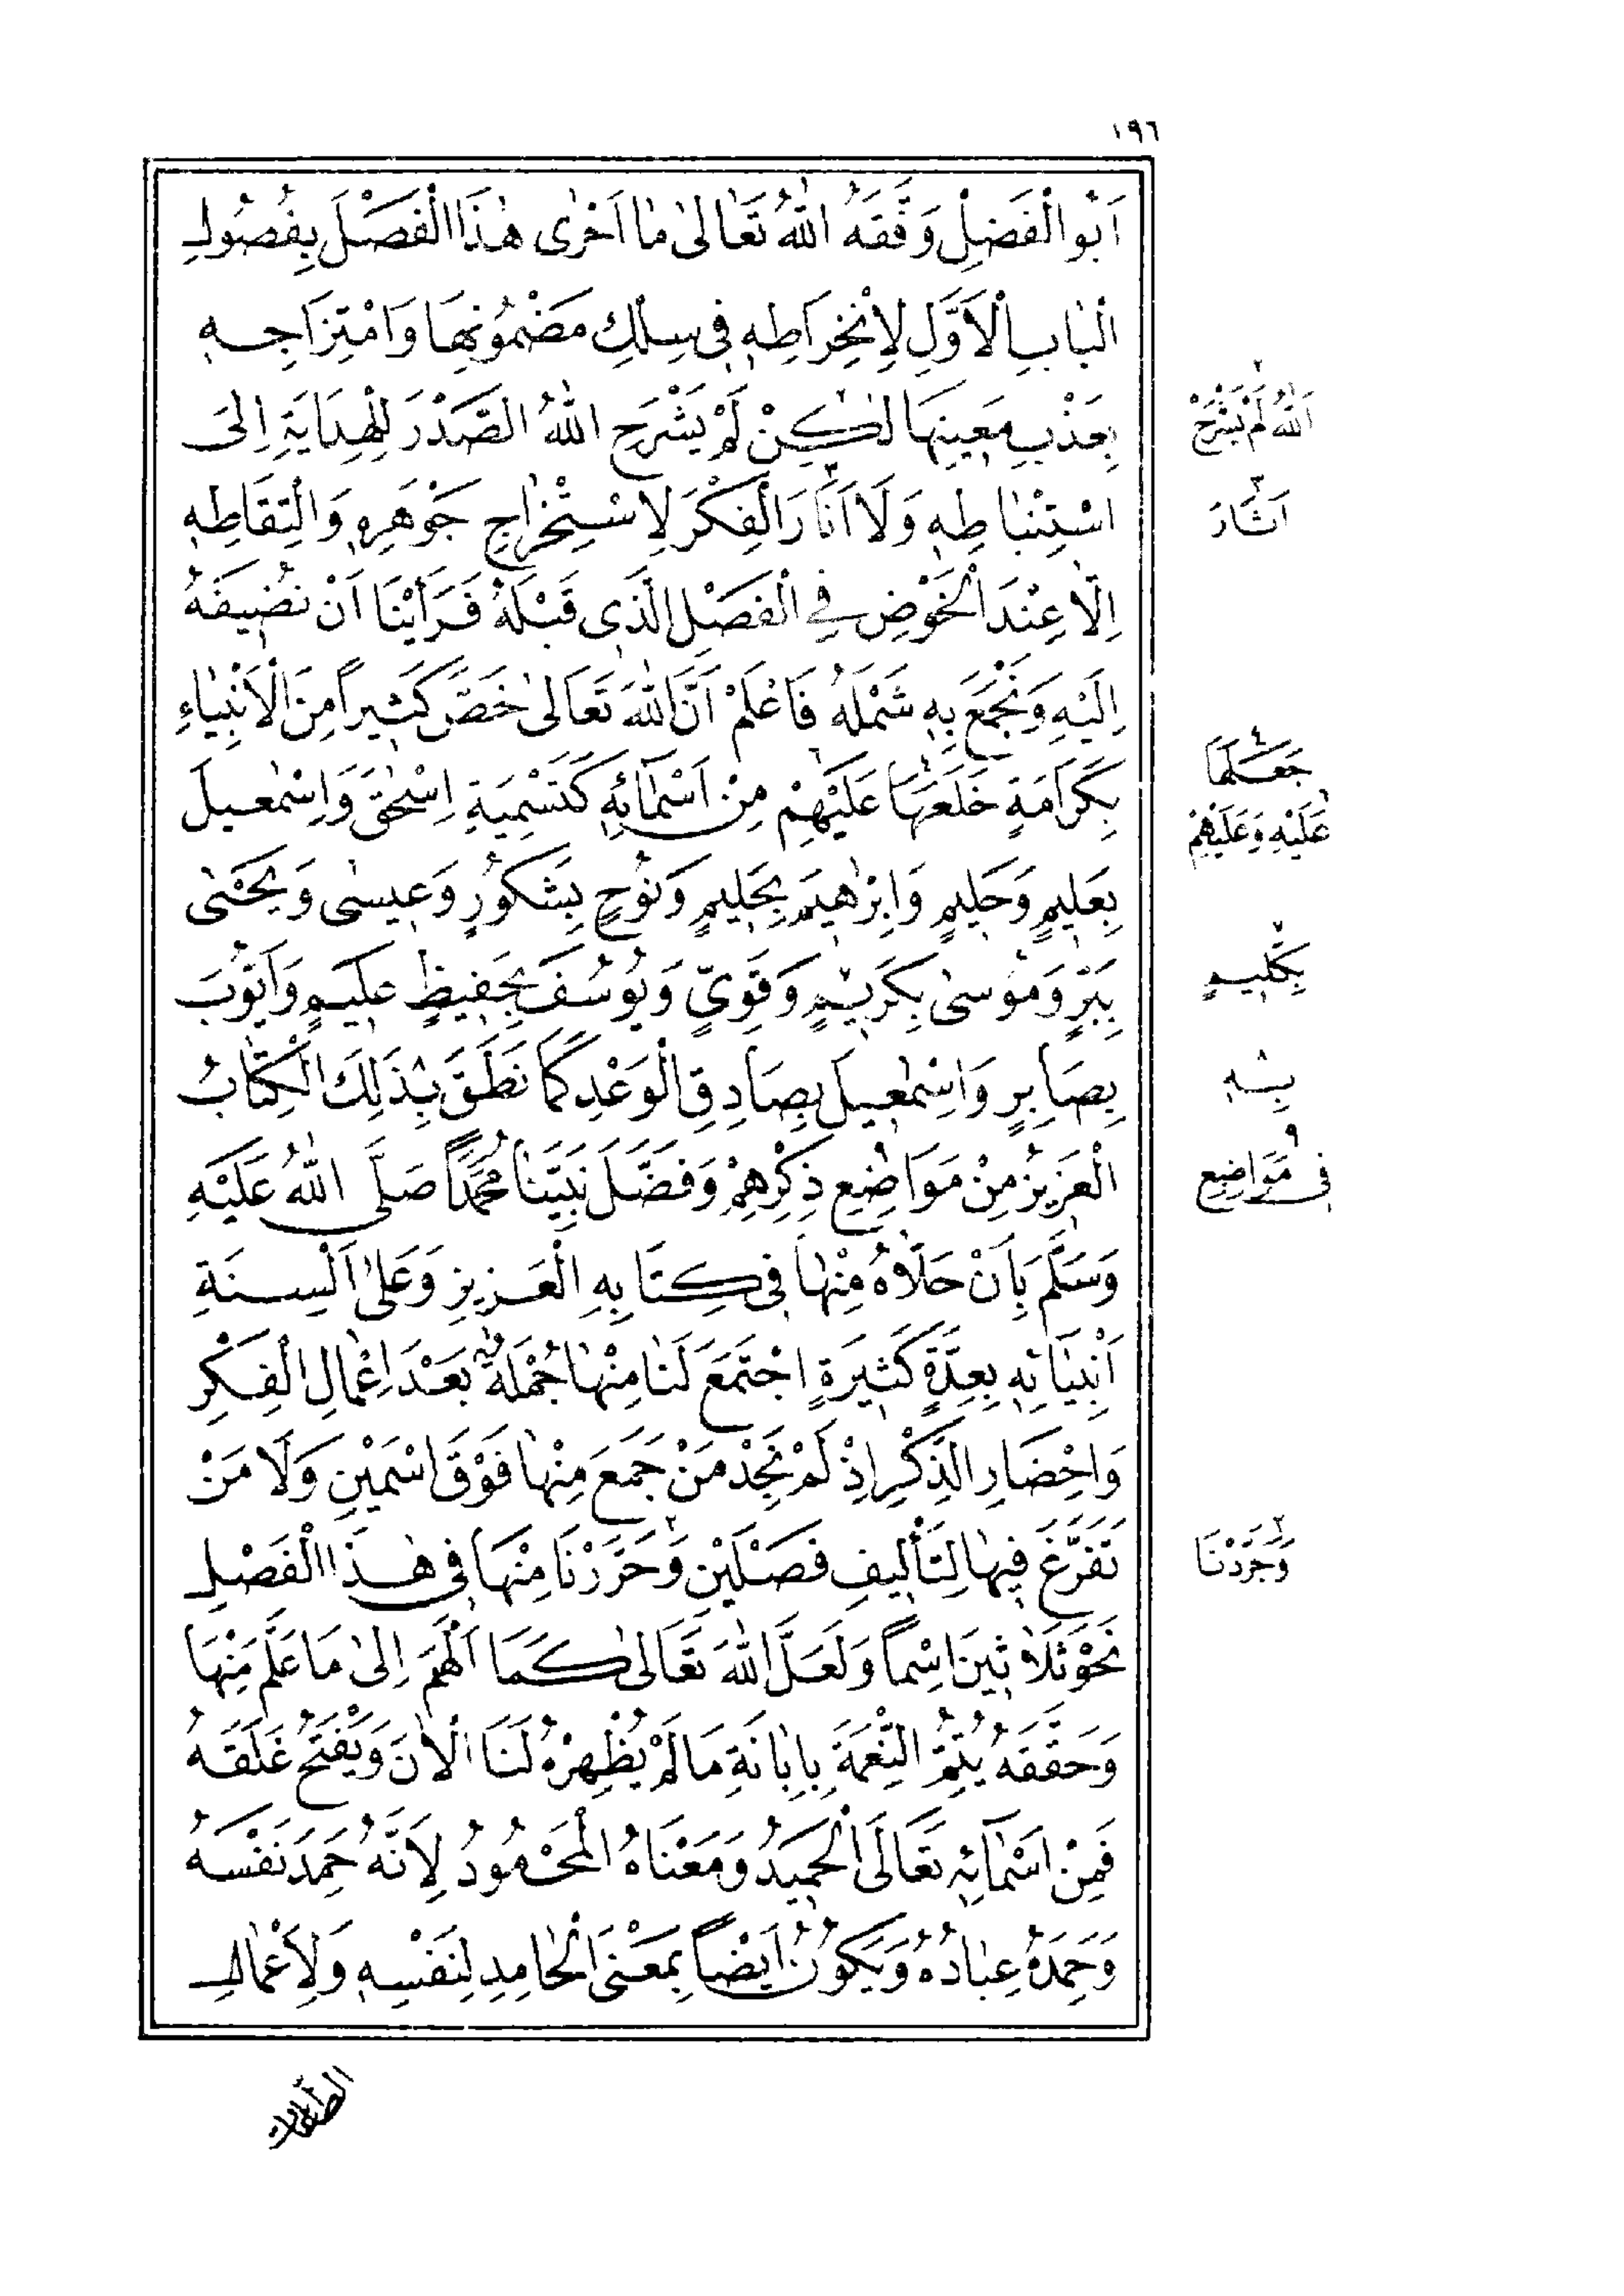 ١٩٦
اَبُو الْفَضْلِ وَفَّقَهُ اللّٰهُ تَعَالٰى مَا اَحْرٰى هٰذَا الْفَصْلَ بِفُصُولِ
الْبَابِ الْاَوَّلِ لِانْخِرَاطِهِ فِى سِلْكِ مَضْمُونِهَا وَامْتِزَاجِهِ
بِعَذْبِ مَعِينِهَا لٰكِنْ لَمْ يَشْرَحِ اللّٰهُ الصَّدْرَ لِلْهِدَايَةِ اِلَى
اسْتِنْبَاطِهِ وَلَا اَنَارَ الْفِكْرَ لِاسْتِخْرَاجِ جَوْهَرِهِ وَالْتِقَاطِهِ
اِلَّا عِنْدَ الْخَوْضِ فِي الْفَصْلِ الَّذِى قَبْلَهُ فَرَأَيْنَا اَنْ نُضِيفَهُ
اِلَيْهِ وَنَجْمَعَ بِهِ شَمْلَهُ فَاعْلَمْ اَنَّ اللّٰهَ تَعَالٰى خَصَّ كَثِيراً مِنَ الْاَنْبِيَاءِ
بِكَرَامَةٍ خَلَعَهَا عَلَيْهِمْ مِنْ اَسْمَائِهِ كَتَسْمِيَةِ اِسْحٰقَ وَاِسْمٰعِيلَ
بِعَلِيمٍ وَحَلِيمٍ وَاِبْرٰهِيمَ بِحَلِيمٍ وَنُوحٍ بِشَكُورٍ وَعِيسٰى وَيَحْيٰى
بِبَرٍّ وَمُوسٰى بِكَرِيمٍ وَقَوِىٍّ وَيُوسُفَ بِحَفِيظٍ عَلِيمٍ وَاَيُّوبَ
بِصَابِرٍ وَاِسْمٰعِيلَ بِصَادِقِ الْوَعْدِ كَمَا نَطَقَ بِذٰلِكَ الْكِتَابُ
الْعَزِيزُ مِنْ مَوَاضِعِ ذِكْرِهِمْ وَفَضَّلَ نَبِيَّنَا مُحَمَّداً صَلَّى اللّٰهُ عَلَيْهِ
وَسَلَّمَ بِاَنْ حَلَّاهُ مِنْهَا فِى كِتَابِهِ الْعَزِيزِ وَعَلٰى اَلْسِنَةِ
اَنْبِيَائِهِ بِعِدَّةٍ كَثِيرَةٍ اجْتَمَعَ لَنَا مِنْهَا جُمْلَةٌ بَعْدَ اِعْمَالِ الْفِكْرِ
وَاِحْضَارِ الذِّكْرِ اِذْ لَمْ نَجِدْ مَنْ جَمَعَ مِنْهَا فَوْقَ اسْمَيْنِ وَلَا مَنْ
تَفَرَّغَ فِيهَا لِتَأْلِيفِ فَصْلَيْنِ وَحَرَّرْنَا مِنْهَا فِى هٰذَا الْفَصْلِ
نَحْوَ ثَلَاثِينَ اسْماً وَلَعَلَّ اللّٰهَ تَعَالٰى كَمَا اَلْهَمَ اِلٰى مَا عَلَّمَ مِنْهَا
وَحَقَّقَهُ يُتِمُّ النِّعْمَةَ بِاِبَانَةِ مَا لَمْ يُظْهِرْهُ لَنَا الْاٰنَ وَيَفْتَحُ غَلَقَهُ
فَمِنْ اَسْمَآئِهِ تَعَالَى الْحَمِيدُ وَمَعْنَاهُ الْمَحْمُودُ لِاَنَّهُ حَمِدَ نَفْسَهُ
وَحَمِدَهُ عِبَادُهُ وَيَكُونُ اَيْضاً بِمَعْنَى الْحَامِدِ لِنَفْسِهِ وَلِاَعْمَالِ
الطَّاعَاتِ
٢
اَللّٰهُ لَمْ يَشْرَحْ
٣
اَثَارَ
٤
جَعَلَهَا
عَلَيْهِ وَعَلَيْهِمْ
٧
بِكَلِيمٍ
٨
بِهِ
٩
فِى مَوَاضِعِ
٢
وَجَرَّدْنَا